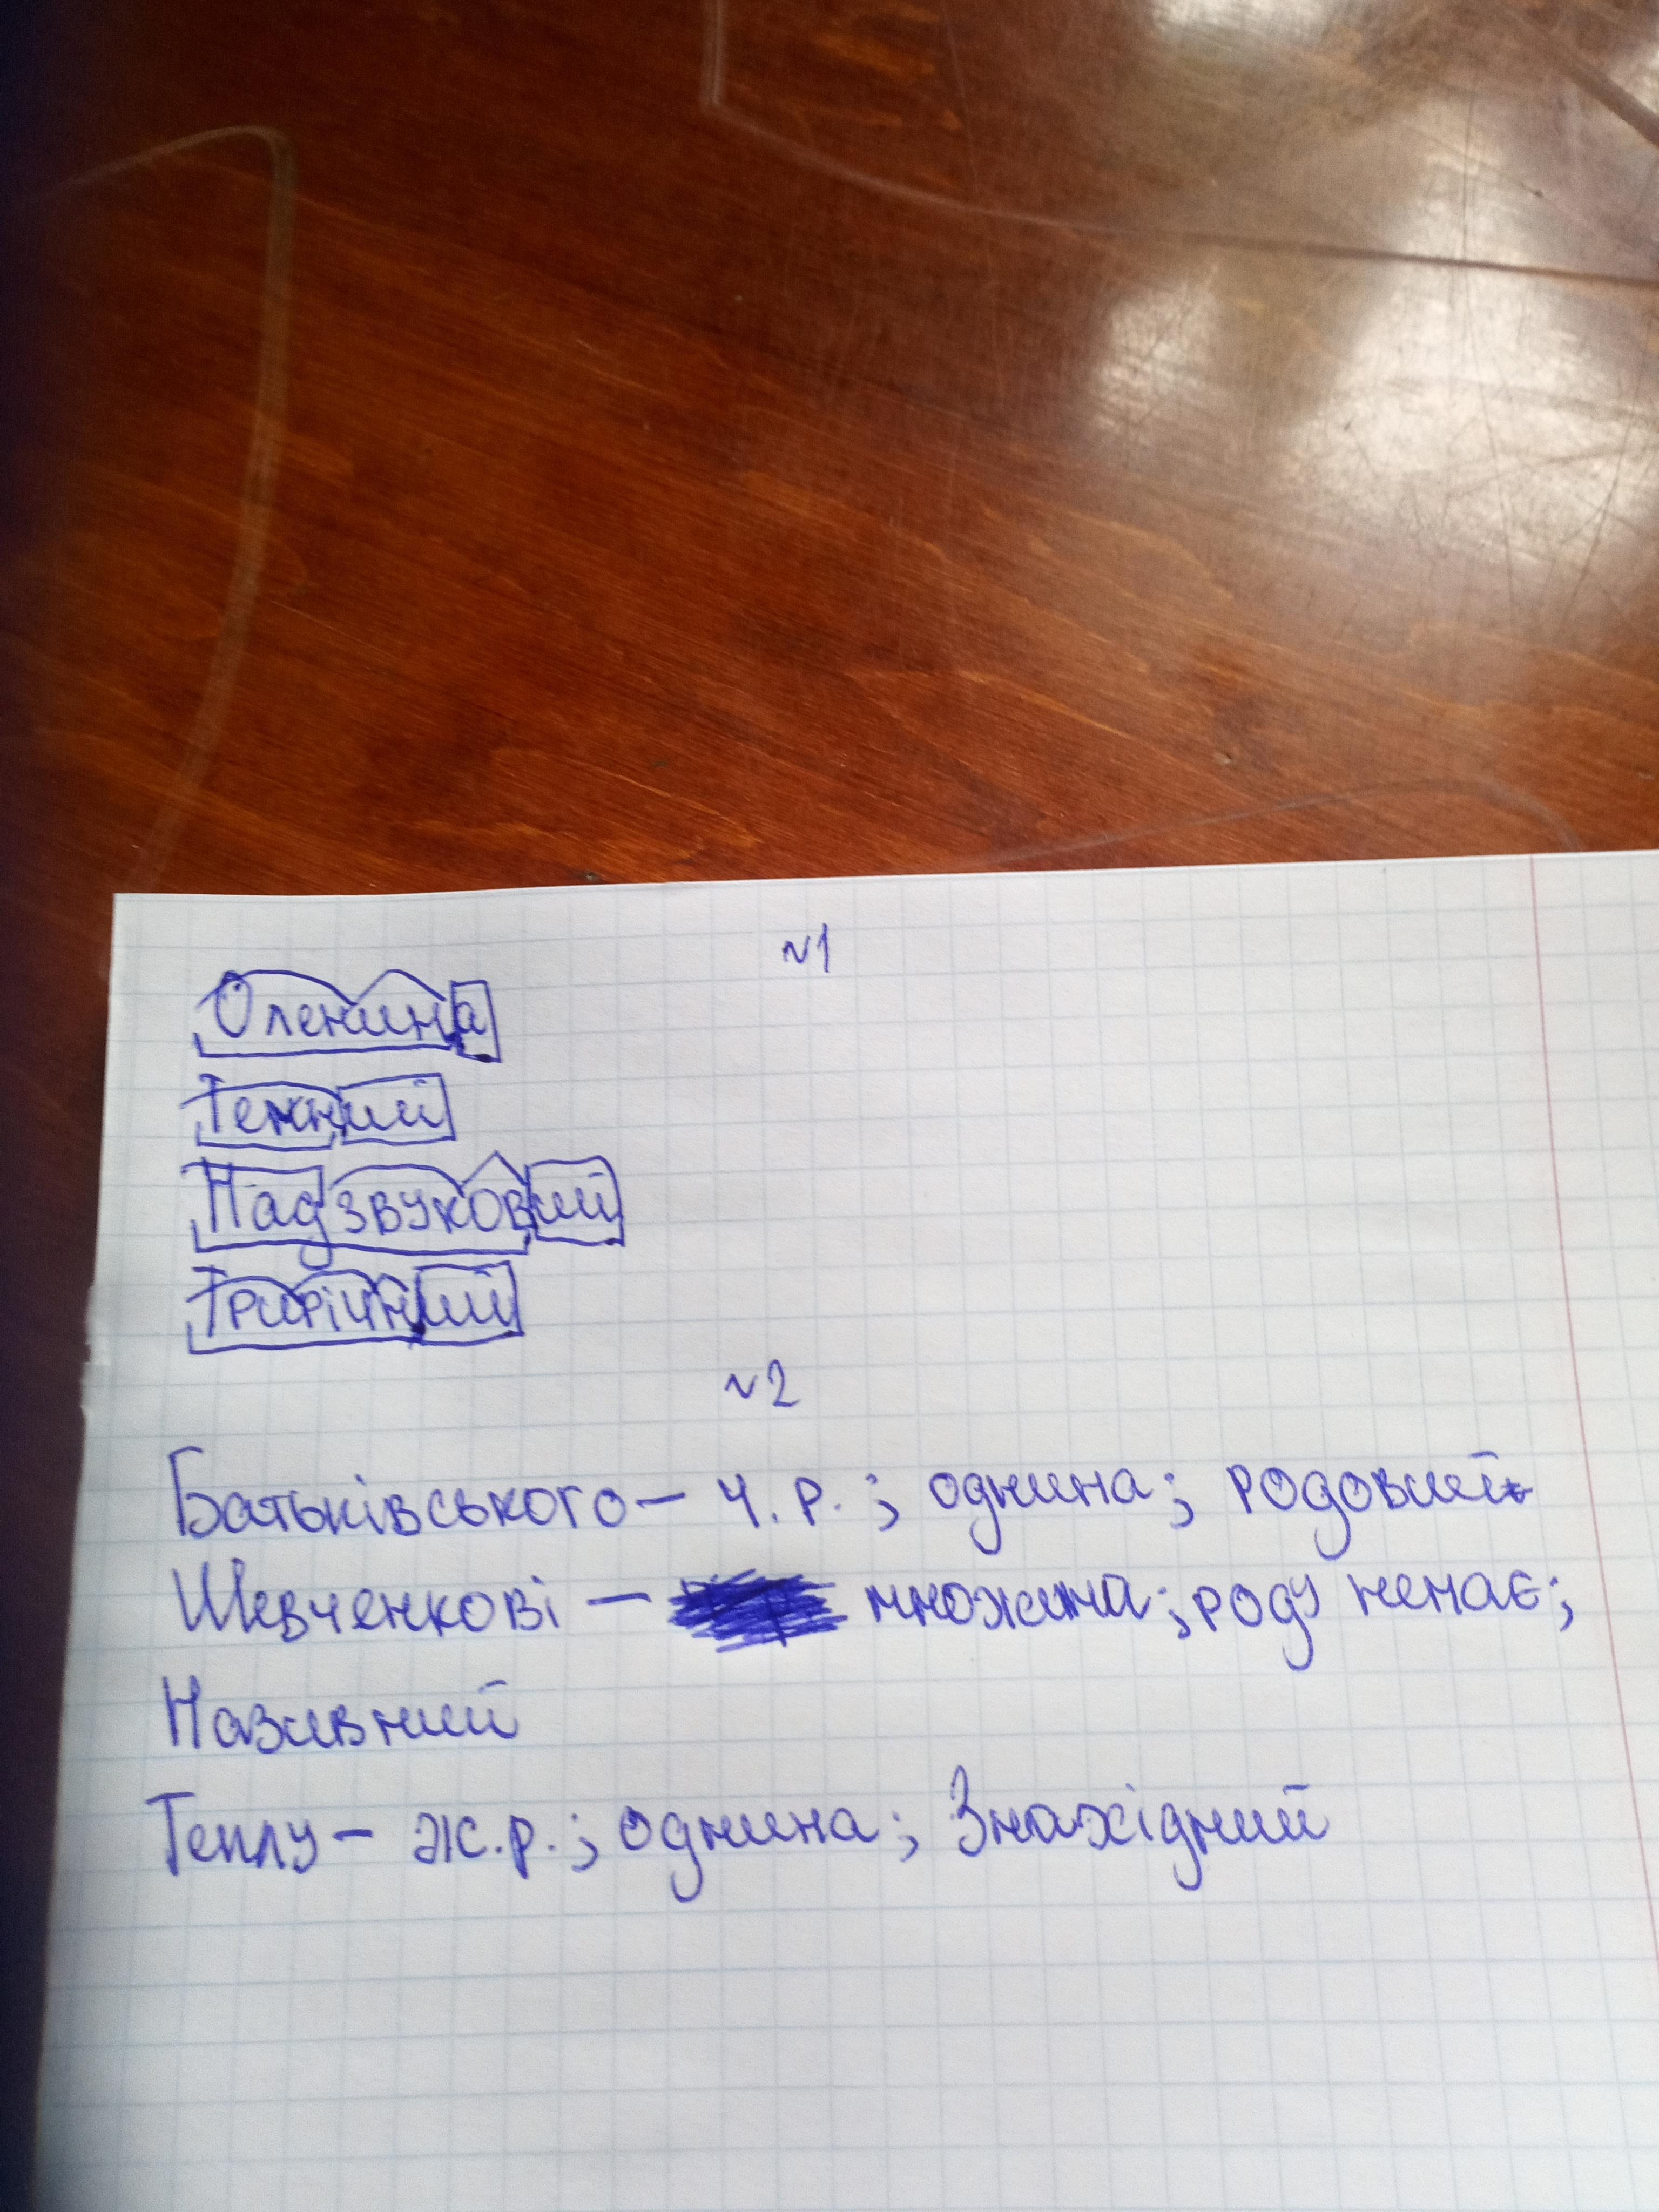 №1
Оленина
Темний
Надзвуковий
Трирічний
№2
Батьківського – ч. р. ; однина; родовий
Шевченкові – множина; роду немає;
Називний
Теплу – ж.р.; однина; Знахідний